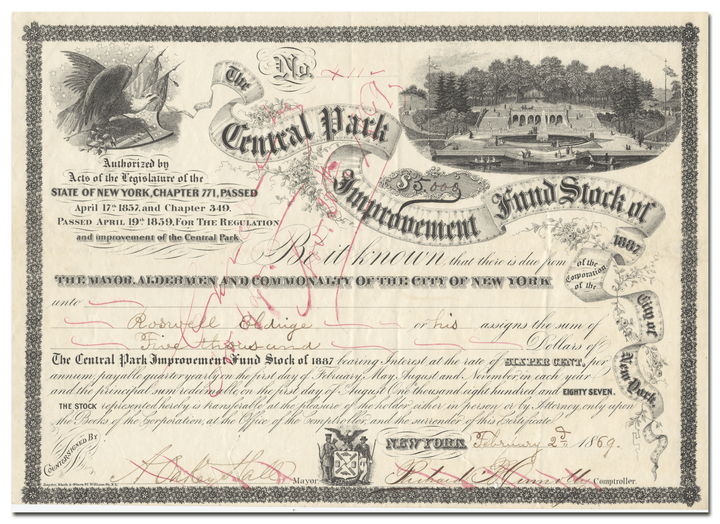 The
No.
Central Park
Improvement
Fund Stock of
1887
of the
Corporation
of the
City of
New York.
$5,000
Authorized by
Acts of the Legislature of the
STATE OF NEW YORK, CHAPTER 771, PASSED
April 17th 1857, and Chapter 349.
PASSED APRIL 19th 1859, FOR THE REGULATION
and improvement of the Central Park
Be it known, that there is due from
THE MAYOR, ALDERMEN AND COMMONALTY OF THE CITY OF NEW YORK
unto
Roswell Eldrige or his assigns the sum of
Five thousand Dollars of
The Central Park Improvement Fund Stock of 1887 bearing Interest at the rate of SIX PER CENT, per
annum, payable quarter yearly on the first day of February, May, August and November in each year
and the principal sum redeemable on the first day of August One thousand eight hundred and EIGHTY SEVEN.
THE STOCK represented hereby is transferable at the pleasure of the holder either in person or by Attorney, only upon
the Books of the Corporation, at the Office of the Comptroller, and the surrender of this Certificate.
COUNTERSIGNED BY
NEW YORK, February 2d 1869.
A. Oakey Hall Mayor
Comptroller.